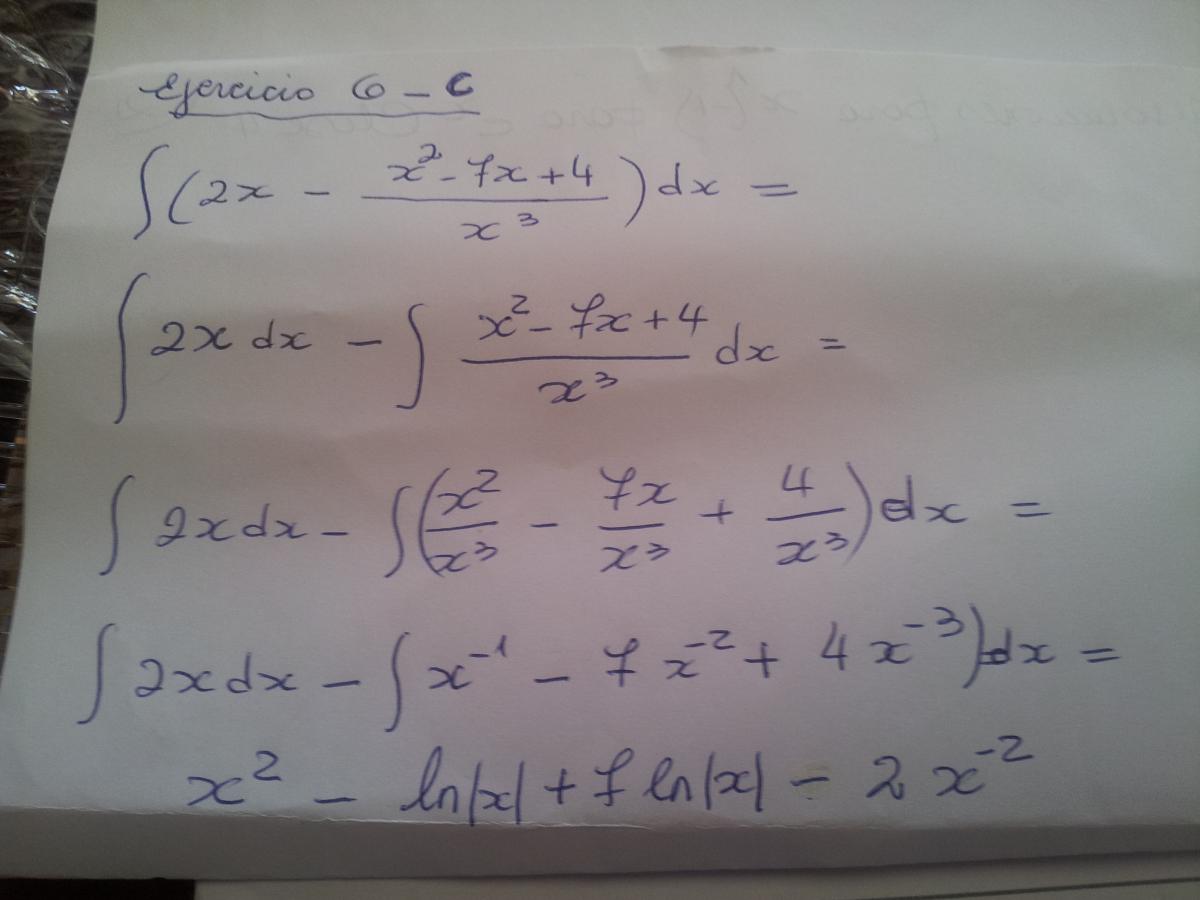 Ejercicio 6 - C
∫(2x - (x² - 7x + 4)/x³) dx =
∫ 2x dx - ∫ (x² - 7x + 4)/x³ dx =
∫ 2x dx - ∫(x²/x³ - 7x/x³ + 4/x³) dx =
∫ 2x dx - ∫ x⁻¹ - 7x⁻² + 4x⁻³) dx =
x² - ln|x| + 7 ln|x| - 2x⁻²